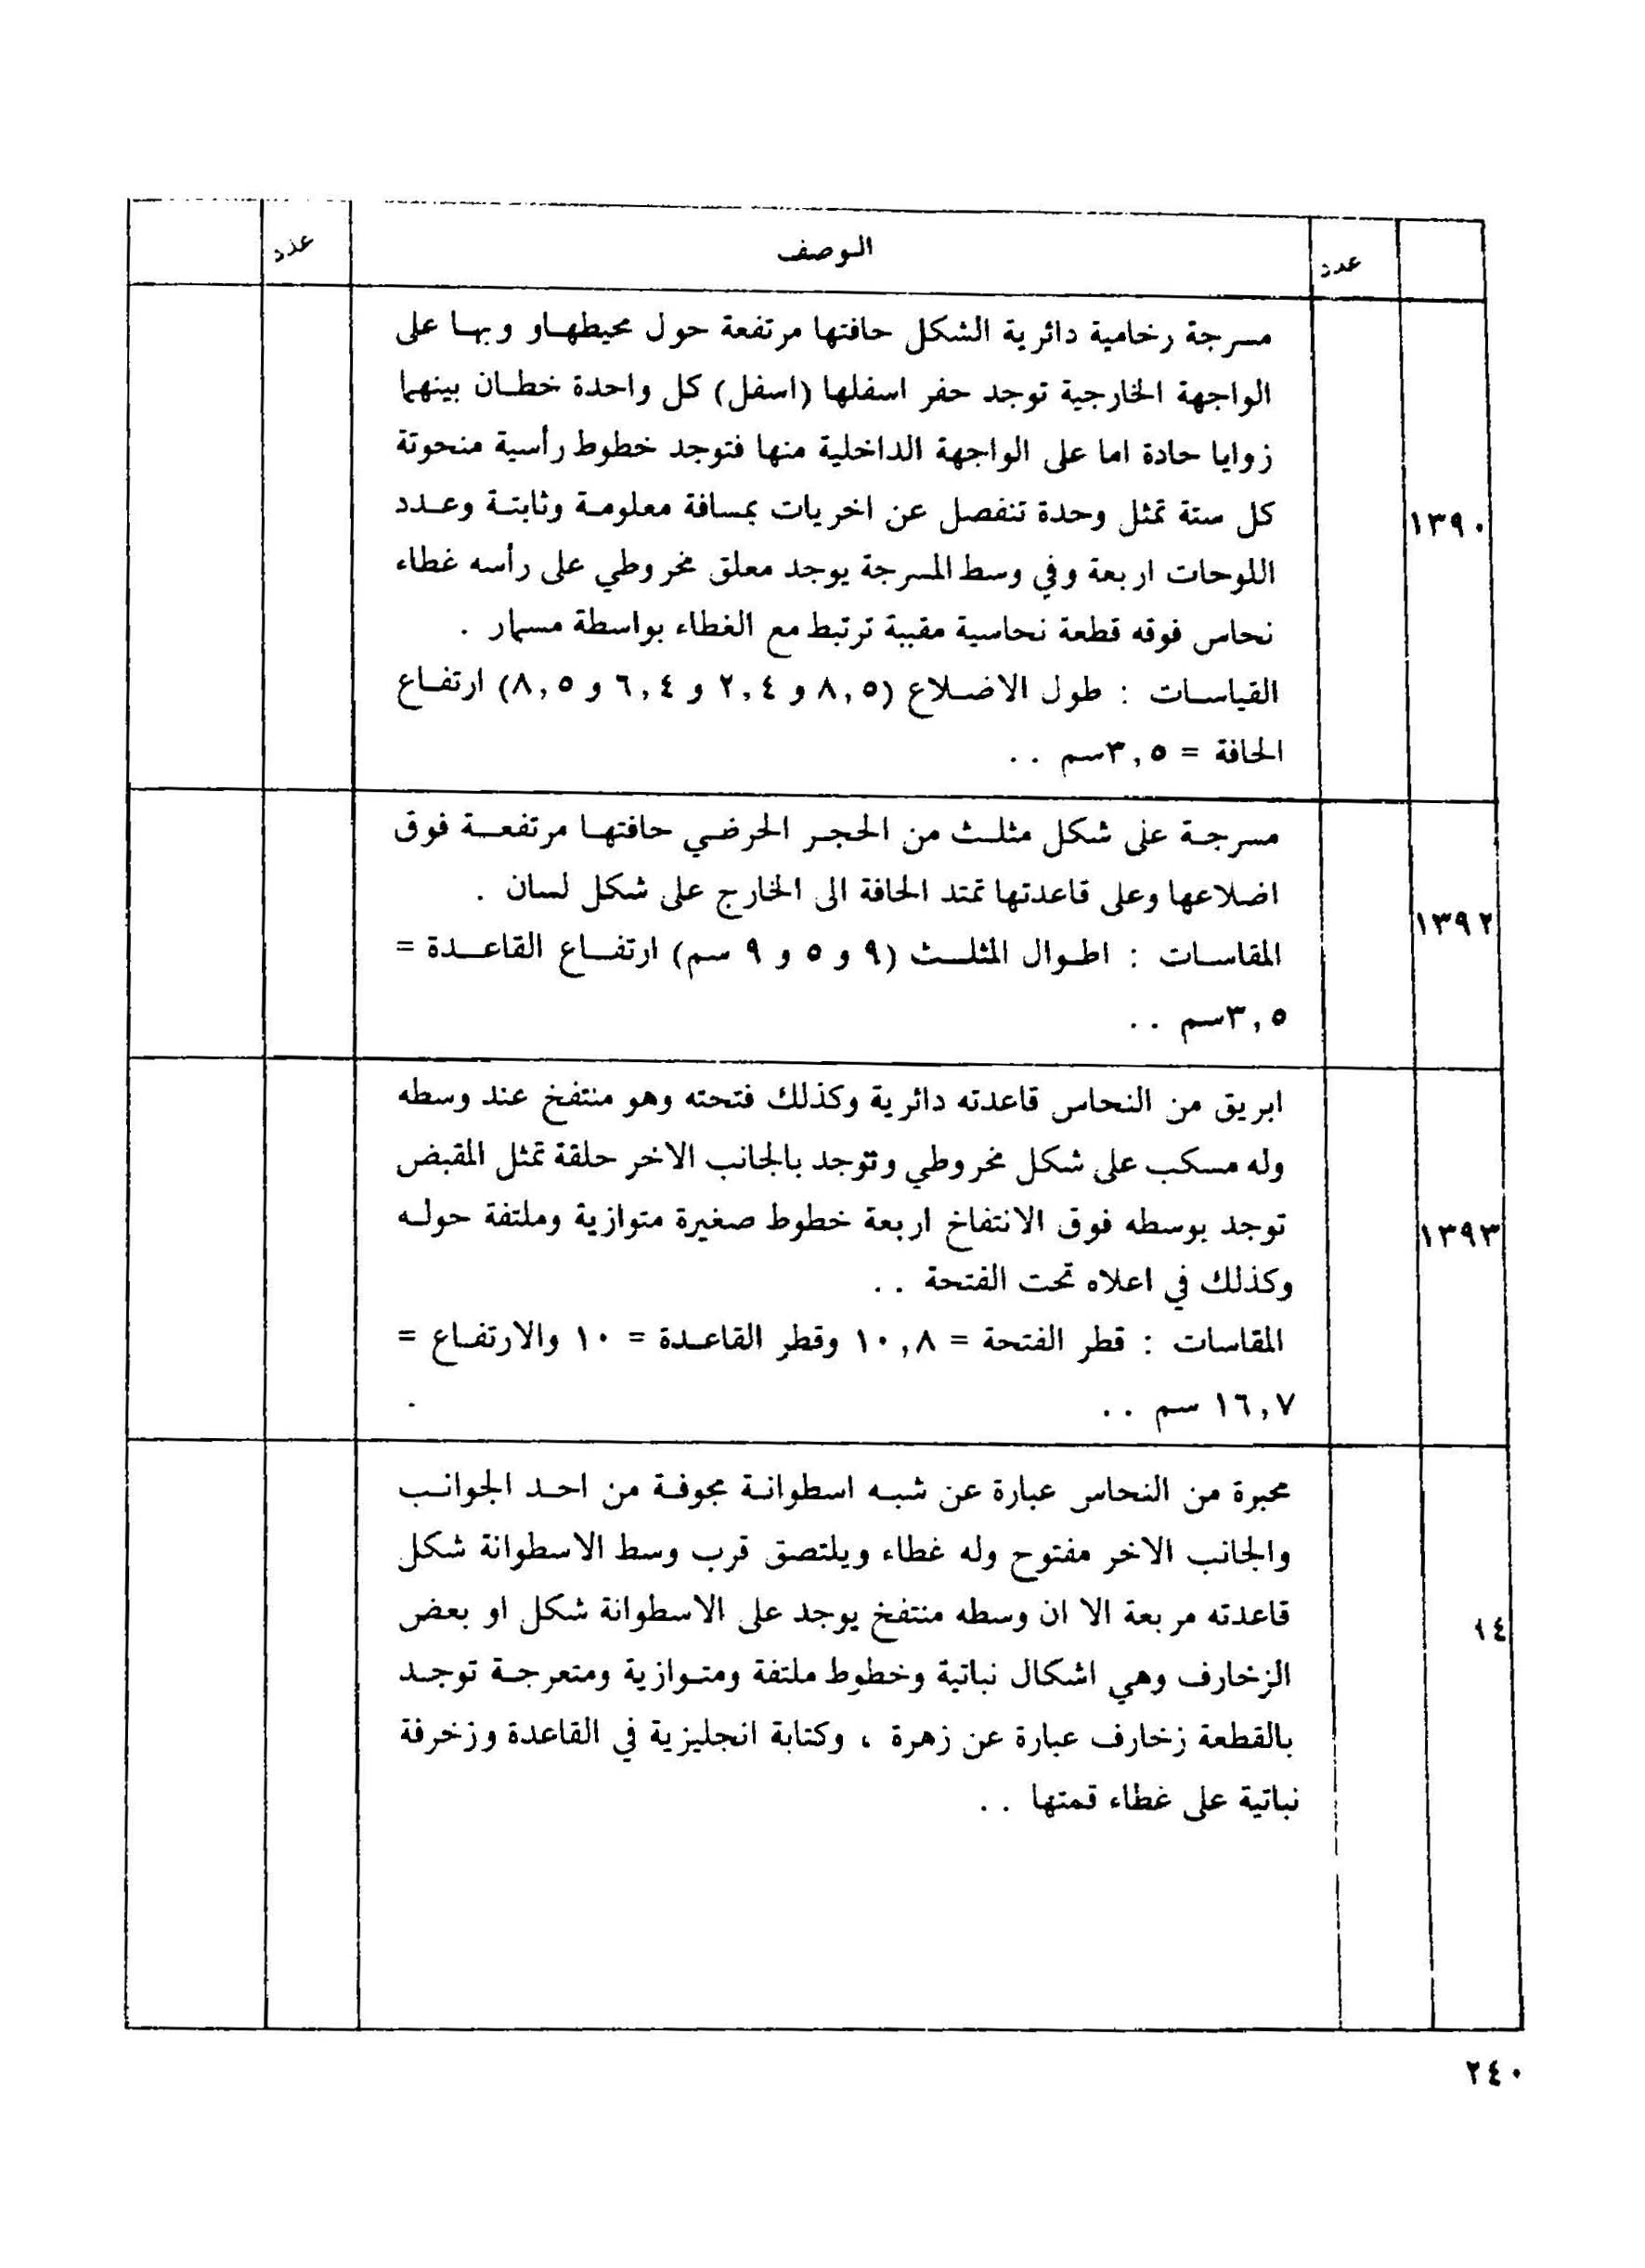 عدد الـوصف عدد
مسرجة رخامية دائرية الشكل حافتها مرتفعة حول محيطهـاو وبهـا على
الواجهة الخارجية توجد حفر اسفلها (اسفل) كل واحدة خطـان بينهما
زوايا حادة اما على الواجهة الداخلية منها فتوجد خطوط رأسية منحوتة
كل ستة تمثل وحدة تنفصل عن اخريات بمسافة معلومـة وثابتـة وعـدد
١٣٩٠
اللوحات اربعة وفي وسط المسرجة يوجد معلق مخروطي على رأسه غطاء
نحاس فوقه قطعة نحاسية مقببة ترتبط مع الغطاء بواسطة مسمار .
القياسـات : طول الاضـلاع (٨,٥ و ٢,٤ و ٦,٤ و ٨,٥) ارتفـاع
الحافة = ٣,٥سم . .
مسرجـة على شكل مثلـث من الحجـر الحرضـي حافتهـا مرتفعـة فوق
اضلاعها وعلى قاعدتها تمتد الحافة الى الخارج على شكل لسان .
١٣٩٢
المقاسـات : اطـوال المثلـث (٩ و ٥ و ٩ سم) ارتفـاع القاعـدة =
٣,٥سم . .
ابريق من النحاس قاعدته دائرية وكذلك فتحته وهو منتفخ عند وسطه
وله مسكب على شكل مخروطي وتوجد بالجانب الاخر حلقة تمثل المقبض
توجد بوسطه فوق الانتفاخ اربعة خطوط صغيرة متوازية وملتفة حولـه
١٣٩٣
وكذلك في اعلاه تحت الفتحة . .
المقاسات : قطر الفتحة = ١٠,٨ وقطر القاعـدة = ١٠ والارتفـاع =
١٦,٧ سم . .
محبرة من النحاس عبارة عن شبـه اسطوانـة مجوفـة من احـد الجوانـب
والجانب الاخر مفتوح وله غطاء ويلتصق قرب وسط الاسطوانة شكل
قاعدته مربعة الا ان وسطه منتفخ يوجد على الاسطوانة شكل او بعض
١٤
الزخارف وهي اشكال نباتية وخطوط ملتفة ومتـوازية ومتعرجـة توجـد
بالقطعة زخارف عبارة عن زهرة ، وكتابة انجليزية في القاعدة وزخرفة
نباتية على غطاء قمتها . .
٢٤٠